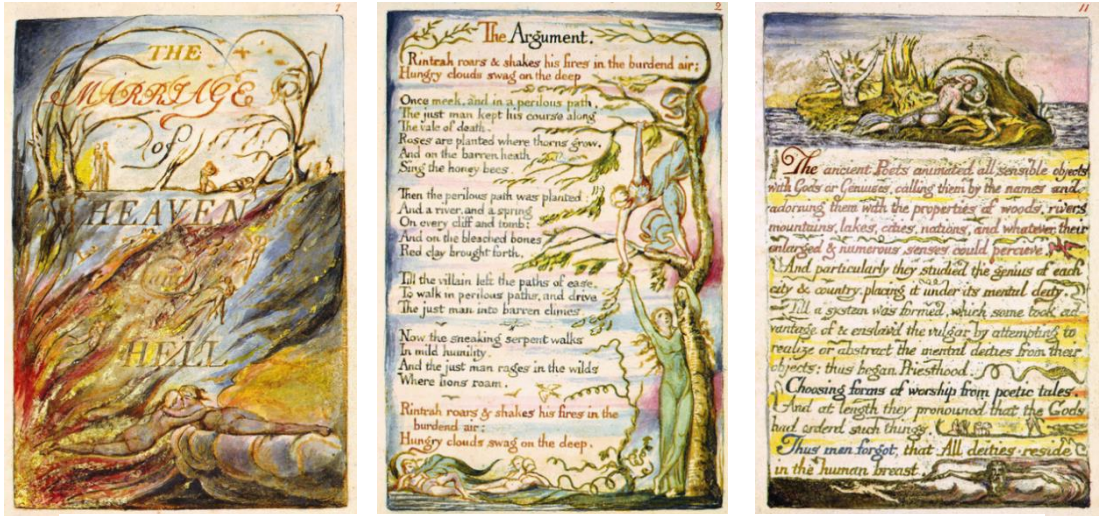 1
THE
MARRIAGE
of
HEAVEN
&
HELL
2
The Argument.
Rintrah roars & shakes his fires in the burdend air;
Hungry clouds swag on the deep
Once meek, and in a perilous path,
The just man kept his course along
The vale of death.
Roses are planted where thorns grow,
And on the barren heath
Sing the honey bees.
Then the perilous path was planted:
And a river, and a spring
On every cliff and tomb;
And on the bleached bones
Red clay brought forth.
Till the villain left the paths of ease,
To walk in perilous paths, and drive
The just man into barren climes.
Now the sneaking serpent walks
In mild humility.
And the just man rages in the wilds
Where lions roam.
Rintrah roars & shakes his fires in the
burdend air;
Hungry clouds swag on the deep.
11
The ancient Poets animated all sensible objects
with Gods or Geniuses, calling them by the names and
adorning them with the properties of woods, rivers,
mountains, lakes, cities, nations, and whatever their
enlarged & numerous senses could percieve.
And particularly they studied the genius of each
city & country, placing it under its mental deity.
Till a system was formed, which some took ad-
vantage of & enslav'd the vulgar by attempting to
realize or abstract the mental deities from their
objects; thus began Priesthood.
Choosing forms of worship from poetic tales.
And at length they pronounced that the Gods
had orderd such things.
Thus men forgot that All deities reside
in the human breast.